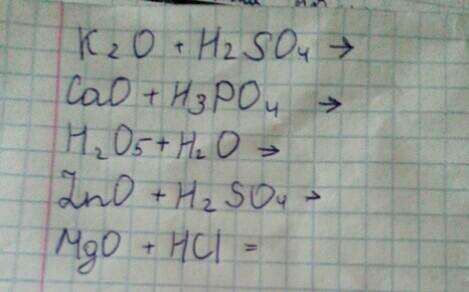 K2O + H2SO4 →
CaO + H3PO4 →
H2O5 + H2O →
ZnO + H2SO4 →
MgO + HCl =